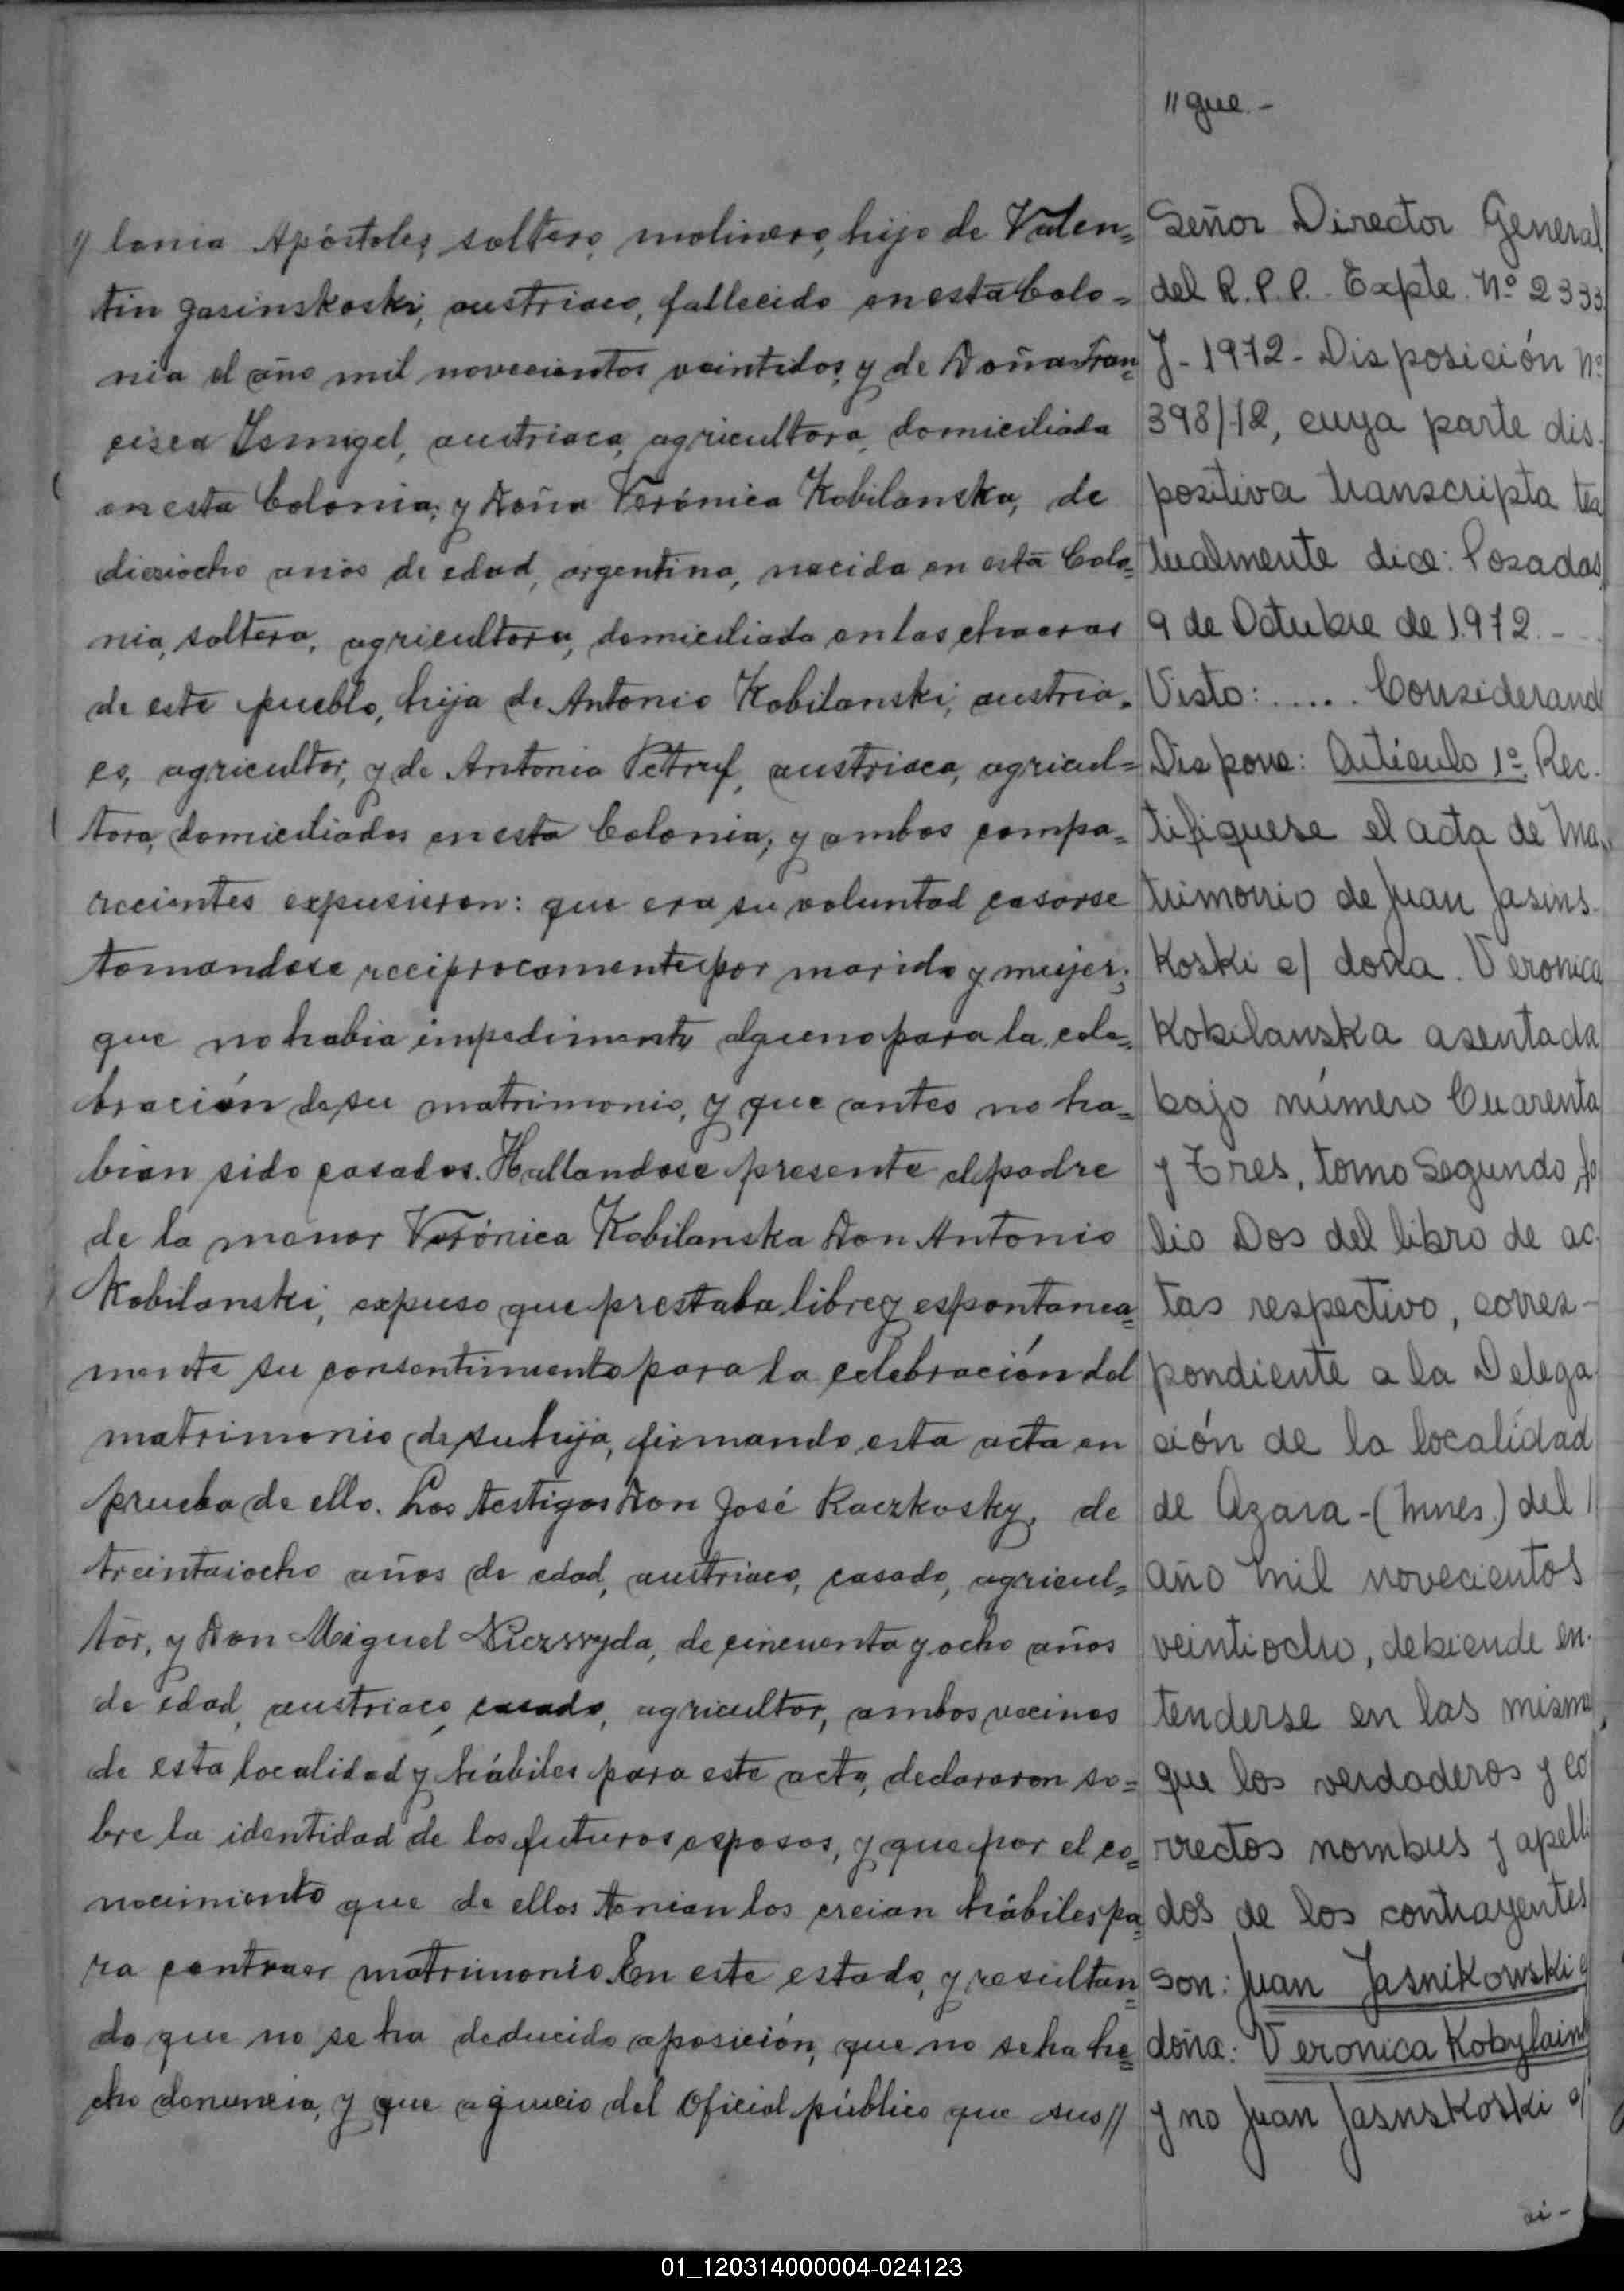 // lonia Apóstoles, soltero, molinero, hijo de Valen=
tin Jasinskoski, austriaco, fallecido en esta Colo=
nia el año mil novecientos veintidos, y de Doña Fran=
cisca Ismigel, austriaca, agricultora, domiciliada
en esta Colonia; y Doña Verónica Kobilanska, de
dieciocho años de edad, argentina, nacida en esta Colo=
nia, soltera, agricultora, domiciliada en las chacras
de este pueblo, hija de Antonio Kobilanski, austria=
co, agricultor, y de Antonia Petruf, austriaca, agricul=
tora, domiciliados en esta Colonia; y ambos compa=
recientes expusieron: que era su voluntad casarse
tomandose reciprocamente por marido y mujer;
que no habia impedimento alguno para la cele=
bración de su matrimonio, y que antes no ha=
bian sido casados. Hallandose presente el padre
de la menor Verónica Kobilanska Don Antonio
Kobilanski, expuso que prestaba libre y espontanea=
mente su consentimiento para la celebración del
matrimonio de su hija, firmando esta acta en
prueba de ello. Los testigos Don José Raczkosky, de
treintaiocho años de edad, austriaco, casado, agricul=
tor, y Don Miguel de cincuenta y ocho años
de edad, austriaco, casado, agricultor, ambos vecinos
de esta localidad y hábiles para este acto, declararon so=
bre la identidad de los futuros esposos, y que por el co=
nocimiento que de ellos tenian los creian hábiles pa=
ra contraer matrimonio. En este estado, y resultan=
do que no se ha deducido oposición, que no se ha he=
cho denuncia, y que a juicio del Oficial público que sus//
// gue.-
Señor Director General
del R.P.P. Expte. Nº 2333
J-1972- Disposición Nº
398/72, cuya parte dis-
positiva transcripta tex
tualmente dice: Posadas,
9 de Octubre de 1.972.--
Visto: ..... Considerand
Dispone: Artículo 1º: Rec-
tifiquese el acta de Ma-
trimonio de Juan Jasins-
Koski c/ doña. Veronica
Kobilanska asentada
bajo número Cuarenta
y Tres, tomo Segundo, fo
lio Dos del libro de ac-
tas respectivo, corres-
pondiente a la Delega-
ción de la localidad
de Azara-(Mnes.) del /
año mil novecientos
veintiocho, debiende en-
tenderse en las misma,
que los verdaderos y co
rrectos nombres y apelli
dos de los contrayentes
son: Juan Jasnikowski c/
doña: Veronica Kobylains
y no Juan Jasnskoski c/
01_120314000004-024123